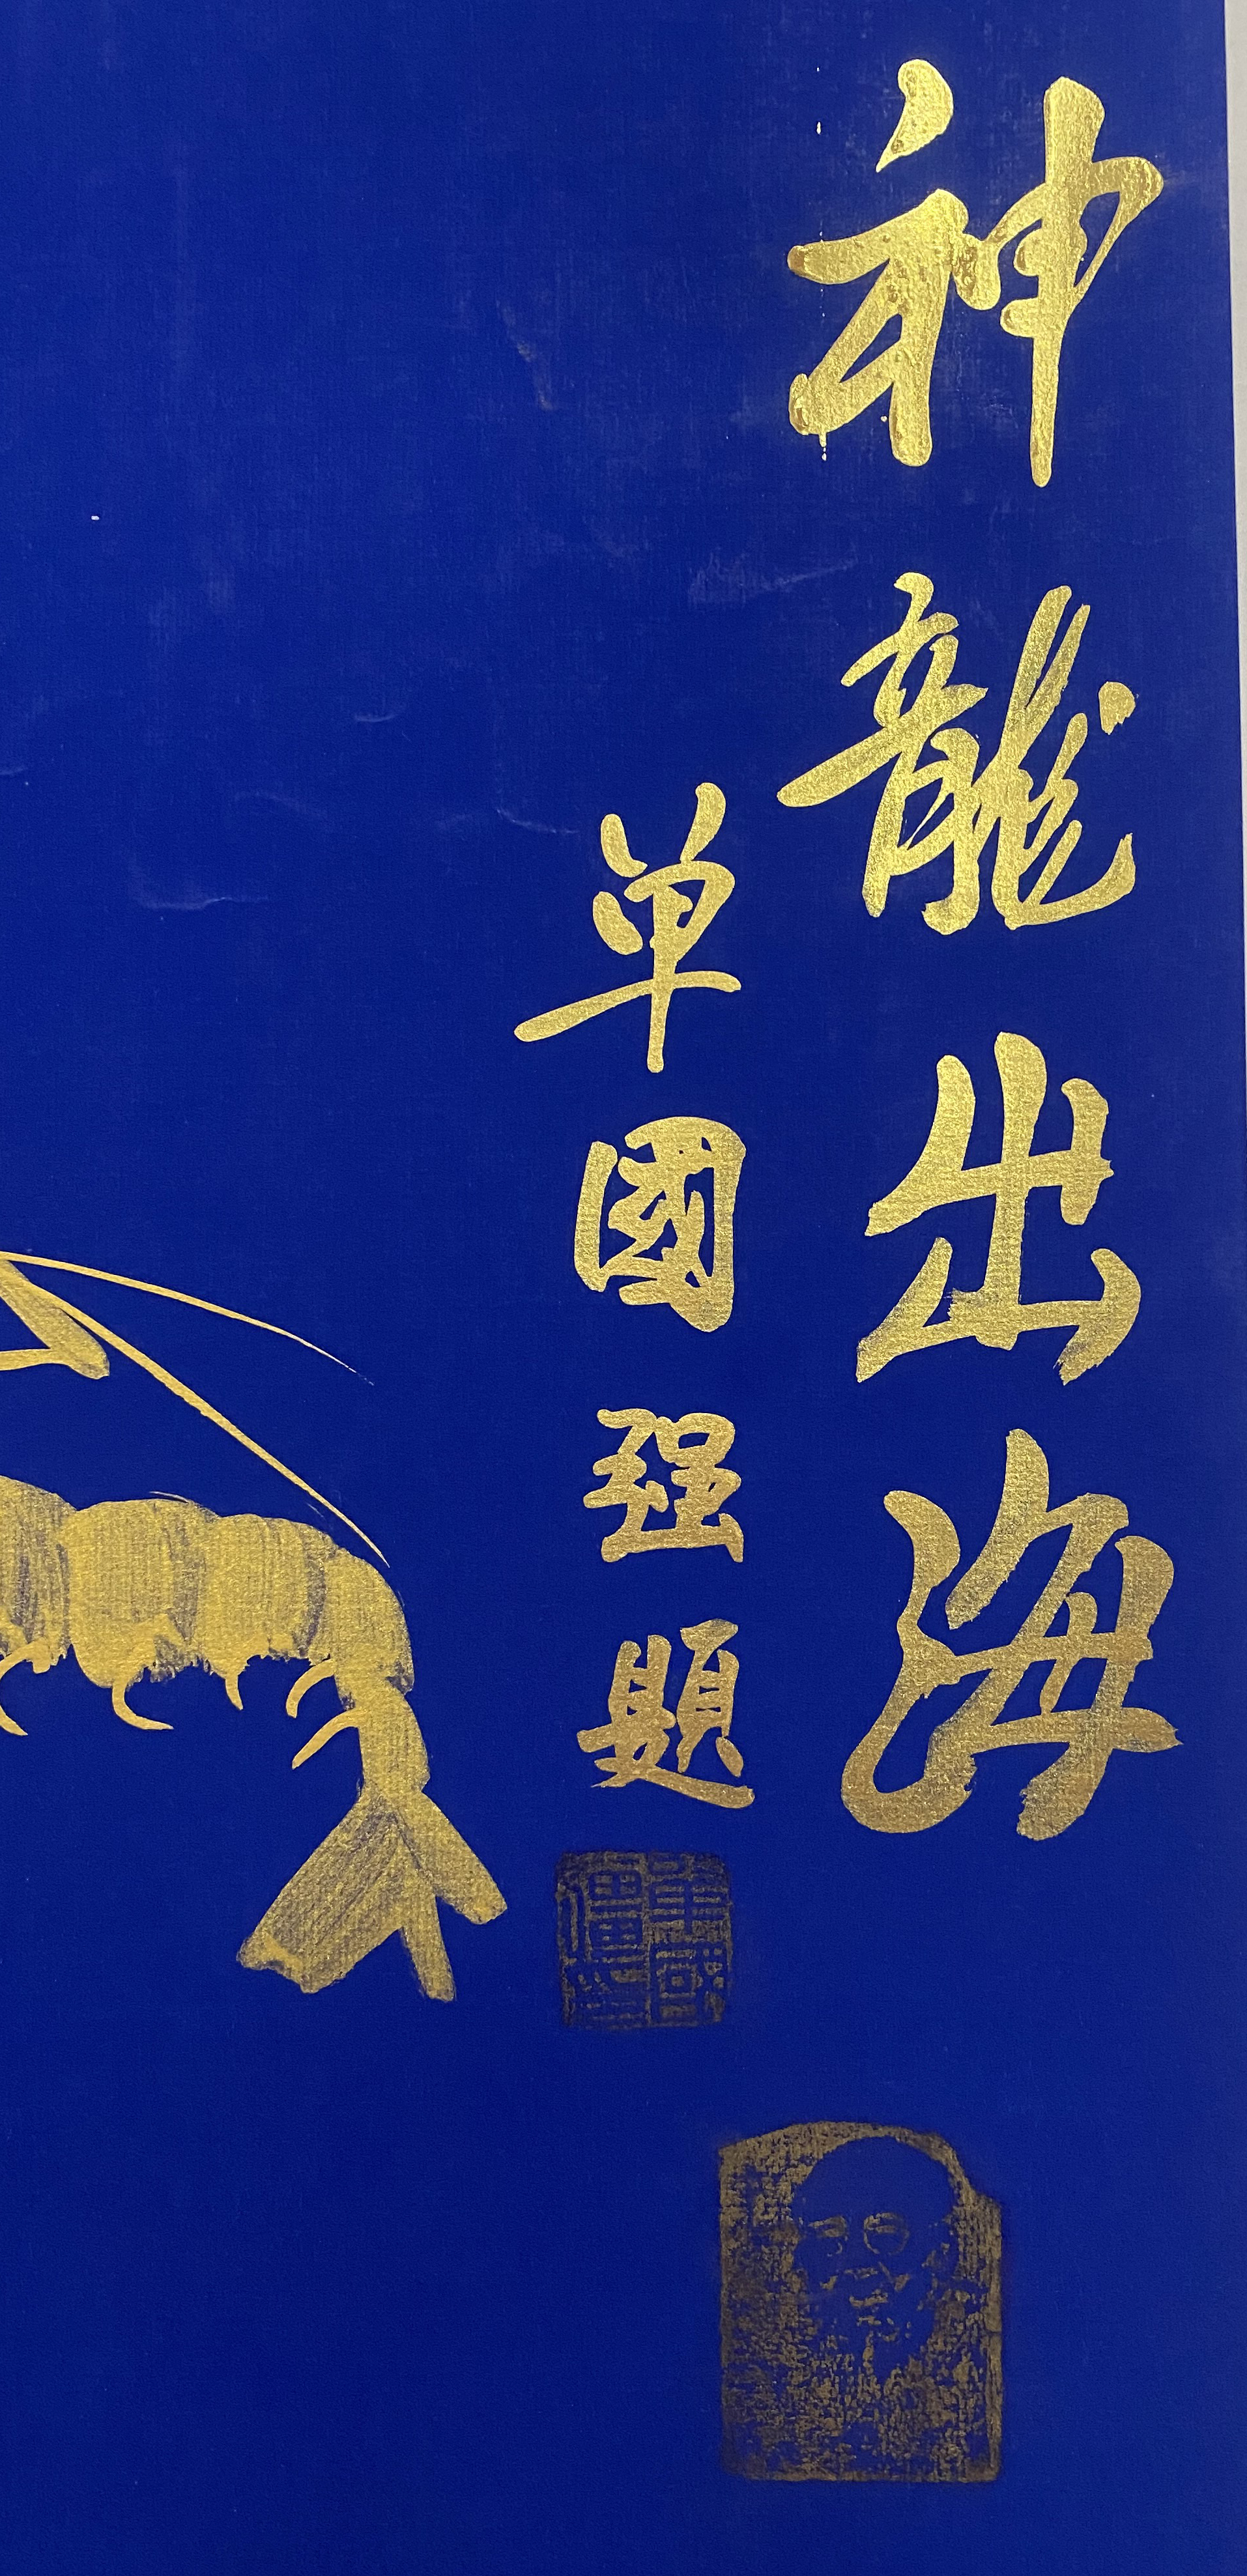 神龍出海
单國强題